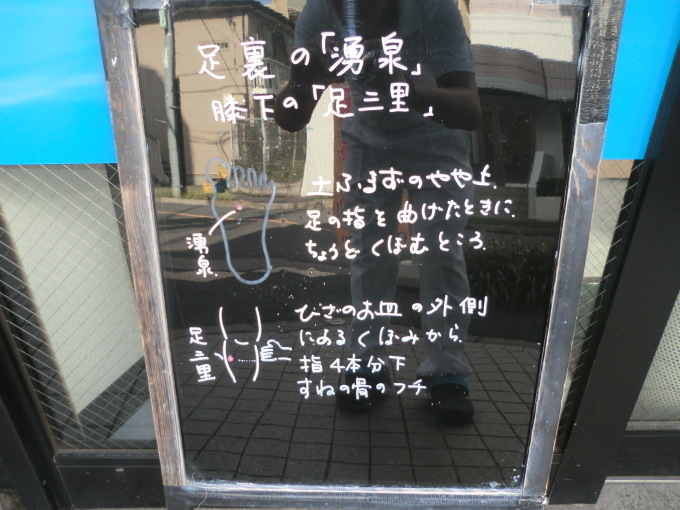 足裏の「湧泉」
膝下の「足三里」
土ふまずのやや上、
足の指を曲げたときに、
ちょうどくぼむところ。
湧泉
ひざのお皿の外側
にあるくぼみから、
指4本分下
すねの骨のフチ
足三里